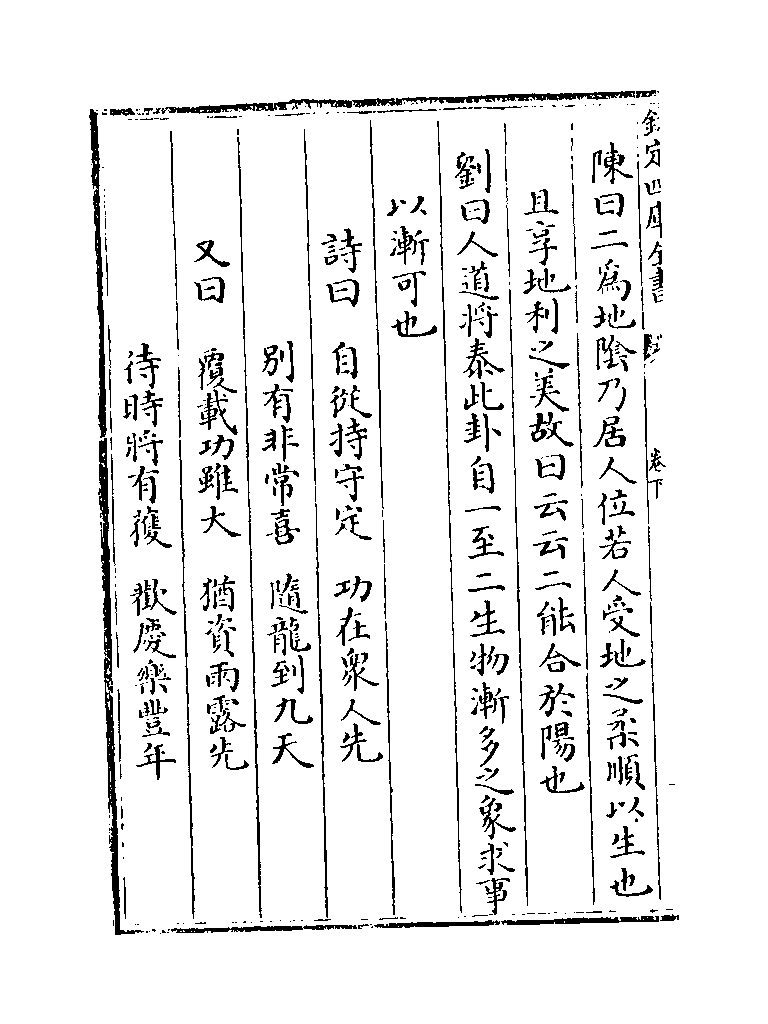 欽定四庫全書
卷下
陳曰二為地陰乃居人位若人受地之柔順以生也
且享地利之美故曰云云二能合於陽也
劉曰人道將泰此卦自一至二生物漸多之象求事
以漸可也
詩曰　自從持守定　功在衆人先
別有非常喜　隨龍到九天
又曰　覆載功雖大　猶資雨露先
待時將有獲　歡慶樂豐年